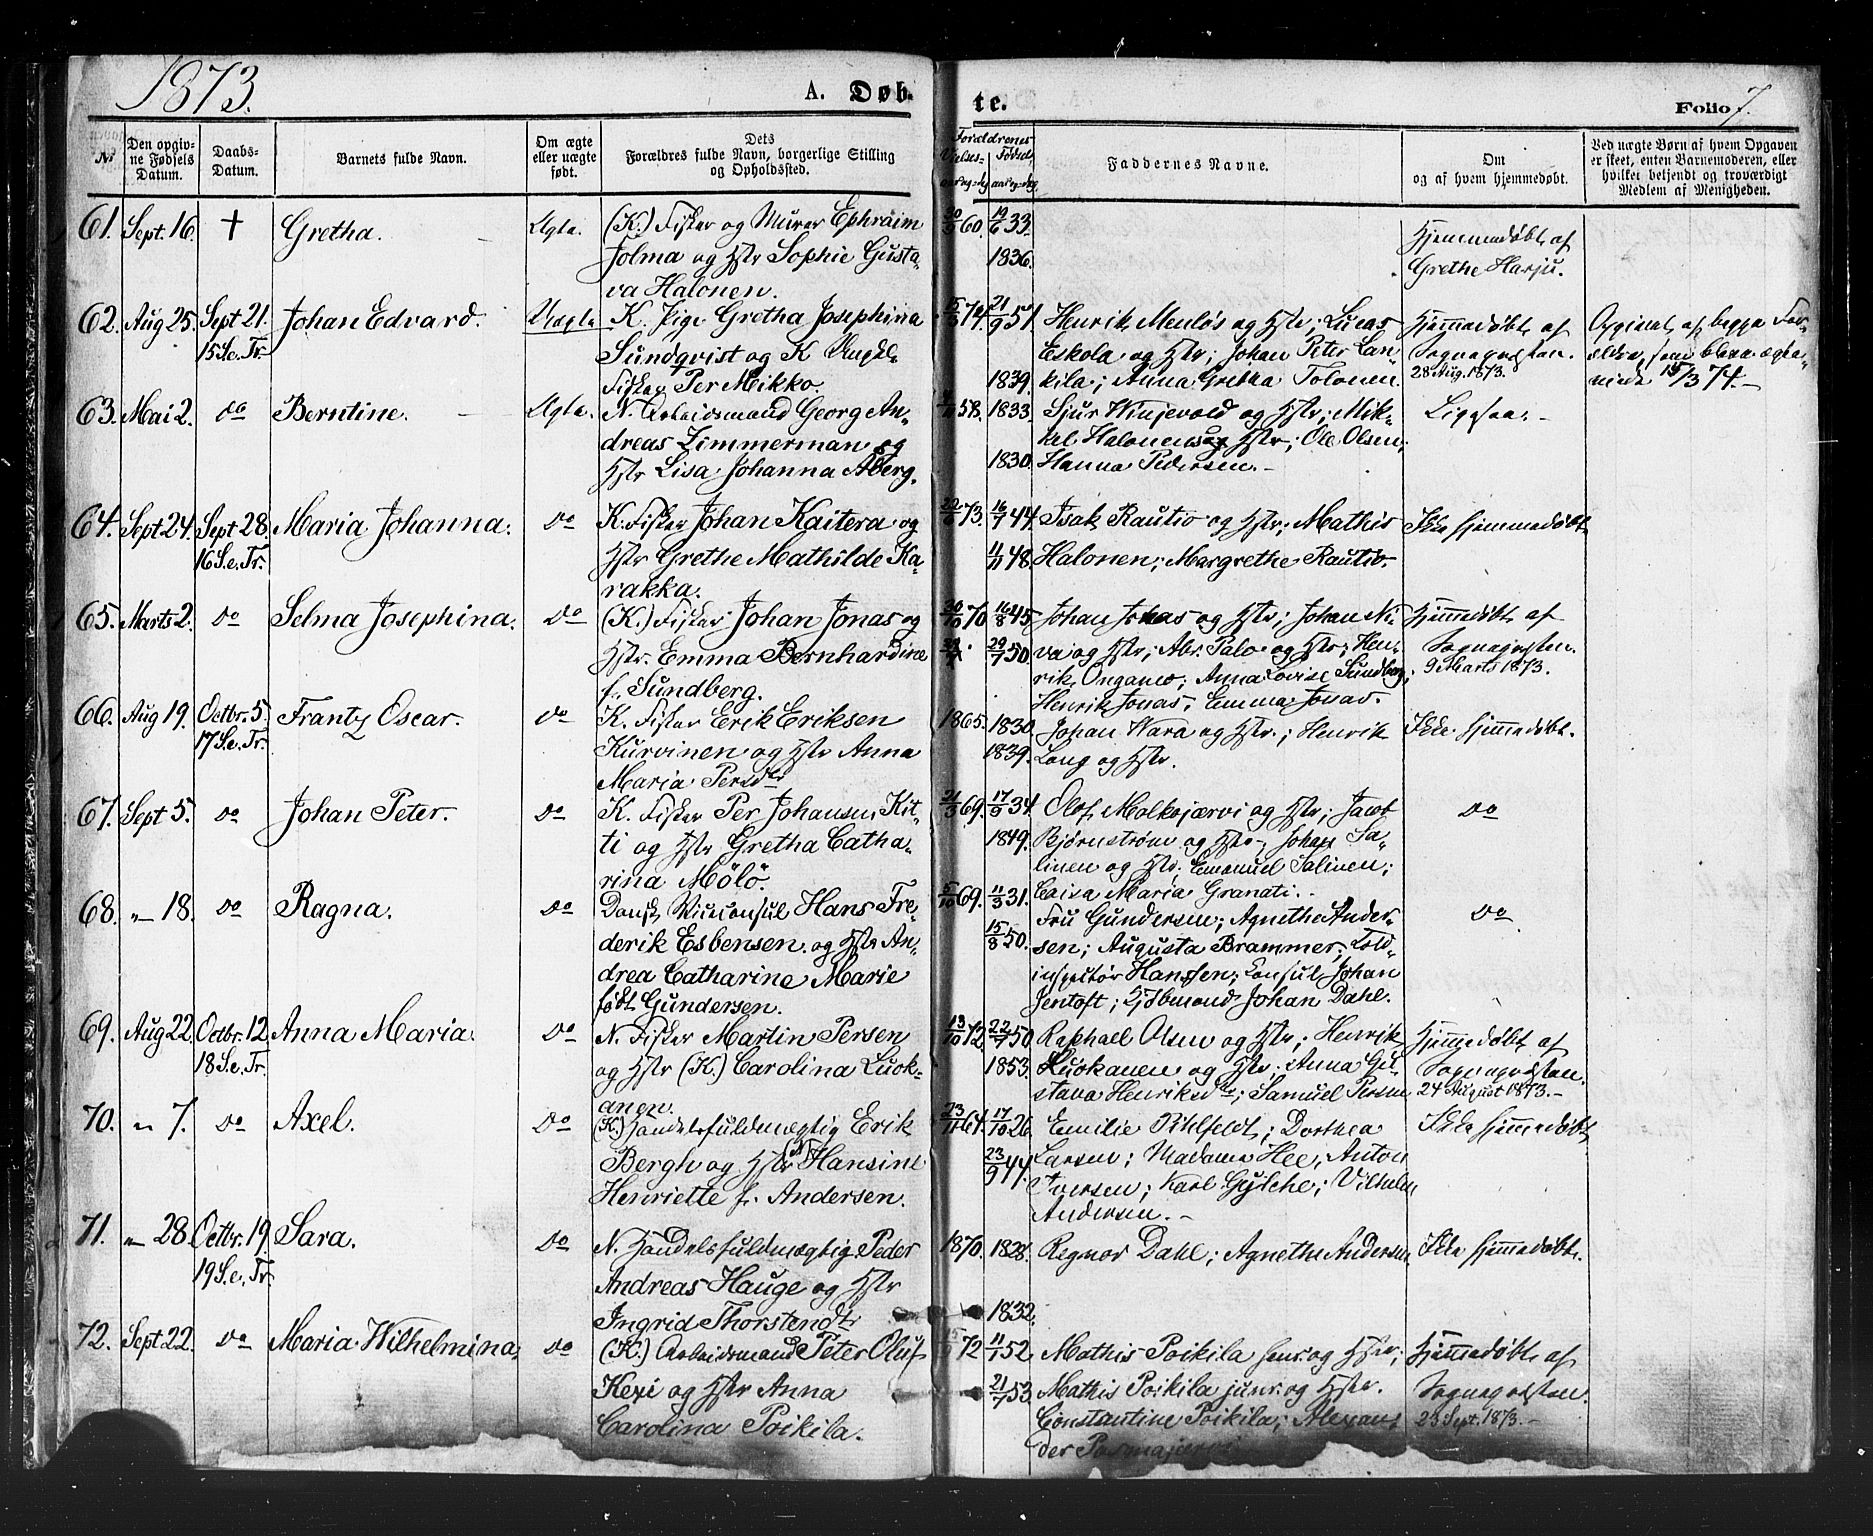 1873.
A. Døb-
te.
Folio 7.
№
Den opgiv-
ne Fødsels
Datum.
Daabs-
Datum.
Barnets fulde Navn.
Om ægte
eller uægte
født.
Dets
Forældres fulde Navn, borgerlige Stilling
og Opholdssted.
Forældrenes
Vielses-
aar og dag
Fødsels
aar og dag
Faddernes Navne.
Om
og af hvem hjemmedøbt.
Ved uægte Børn af hvem Opgaven
er skeet, enten Barnemoderen, eller
hvilket betjendt og troværdigt
Medlem af Menigheden.
61. Sept. 16. † Gretha. Ægte. (K.) Fisker og Murer Ephraim
Jolma og Hstr Sophie Gusta-
va Halonen.
60. 19/6 33.
1836.
Hjemmedøbt af
Grethe Harju.
62. Aug 25. Sept 21. Johan Edvard. Uægte K. Pige Gretha Josephina
15 S.e.Tr. Sundqvist og K. Ungk.
Fisker Per Mikko.
15/3 74. 21/9 51.
1839.
Henrik Menlös og Hstr; Lucas
Eskola og Hstr; Johan Peter Lan-
kila; Anna Gretha Tolonen.
Hjemmedøbt af
Sognepræsten.
28 Aug. 1873.
Opgivet af begge For-
ældre, som bleve ægte-
viede 15/3 74.-
63. Mai 2. do Berntine. Ægte. N. Arbeidsmand Georg An-
dreas Zimmerman og
Hstr Lisa Johanna Åberg.
58. 1833.
1830.
Sjur Winjevold og Hstr; Mik-
kel Halonen og Hstr; Ole Olsen;
Hanna Pedersen.-
Ligesaa.-
64. Sept 24. Sept 28. Maria Johanna. do K. Fisker Johan Kaitera og
16 S.e.Tr. Hstr Grethe Mathilde Ka-
rakka.
73. 16/7 44.
11/11 48.
Isak Rautio og Hstr; Mathis
Halonen; Margrethe Rautio.
Ikke hjemmedøbt.
65. Marts 2. do Selma Josephina. do (K.) Fisker Johan Jonas og
Hstr. Emma Bernhardine
f. Sundberg.
20/10 70. 16/8 45.
29/7 50
Johan Jonas og Hstr; Johan Ni-
va og Hstr; Abr. Palo og Hstr; Hen-
rik Onganco; Anna Lovise Sundberg;
Henrik Jonas; Emma Jonas.
Hjemmedøbt af
Sognepræsten.
9 Marts 1873.
66. Aug 19. Octbr. 5. Frantz Oscar. do K. Fisker Erik Eriksen
17 S.e.Tr. Kurvinen og Hstr Anna
Maria Persdtr
1865. 1830.
1839.
Johan Wara og Hstr.; Henrik
Lang og Hstr.
Ikke hjemmedøbt.
67. Sept 5. do Johan Peter. do K. Fisker Per Johansen Kit-
ti og Hstr Gretha Catha-
rina Mölö.
21/3 69. 17/9 34.
1849.
Olof Molkojærvi og Hstr; Jacob
Bjørnstrøm og Hstr; Johan Sa-
linen og Hstr; Emanuel Salinen;
Caisa Maria Granati.
do
68. " 18. do Ragna. do Dansk Viceconsul Hans Fre-
derik Esbensen og Hstr An-
drea Catharine Marie
født Gundersen.
5/10 69. 11/3 31.
15/8 50.
Fru Gundersen; Agnethe Ander-
sen; Augusta Brammer; Told-
inspektør Hanssen; Consul Johan
Jentoft; Kjøbmand Johan Dahl.
do
69. Aug 22. Octbr. 12. Anna Maria. do N. Fisker Martin Persen
18 S.e.Tr. og Hstr (K.) Carolina Luok-
anen.
13/10 72. 22/7 50.
1853.
Raphael Olsen og Hstr; Henrik
Luokanen og Hstr; Anna Gu-
stava Henriksdtr; Samuel Persen
Hjemmedøbt af
Sognepræsten.
24 August 1873.-
70. " 7. do Axel. do (K.) Handelsfuldmægtig Erik
Bergh og Hstr (N) Hansine
Henriette f. Andersen.
23/11 67. 17/10 26.
23/9 44.
Emilie Pihlfeldt; Dorthea
Larsen; Madame Hee; Anton
Iversen; Karl Gytche; Vilhelm
Andersen.-
Ikke hjemmedøbt.
71. " 28. Octbr. 19. Sara. do N. Handelsfuldmægtig Peder
19 S.e.Tr. Andreas Hauge og Hstr
Ingrid Thorstensdtr
1870. 1828.
1832.
Regmor Dahl; Agnethe Andersen
Ikke hjemmedøbt.
72. Sept 22. do Maria Wilhelmina. do (K.) Arbeidsmand Peter Oluf
Kexi og Hstr Anna
Carolina Poikila.
72 11/1 52.
21/7 53.
Mathis Poikila senr. og Hstr;
Mathis Poikila junr. og Hstr.
Constantine Poikila; Alexan-
der Pasmajærvi
Hjemmedøbt af
Sognepræsten.
23 Sept. 1873.-